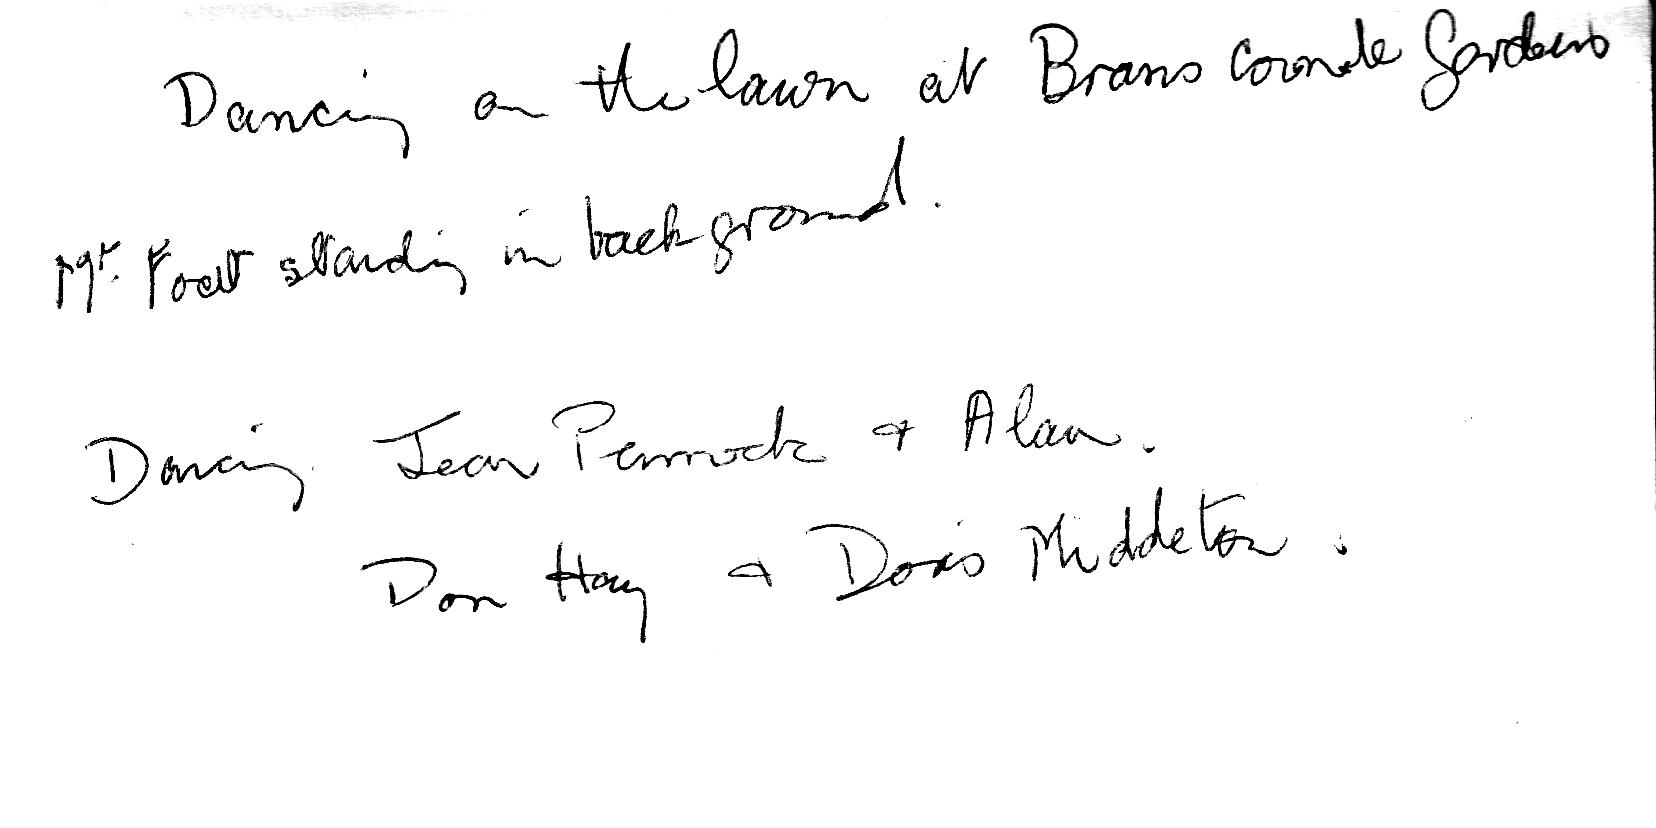 Dancing on the lawn at Branscombe Gardens
Mr. Foat standing in background.
Dancing Jean Pennock & Alan.
Don Hay & Doris Middleton.